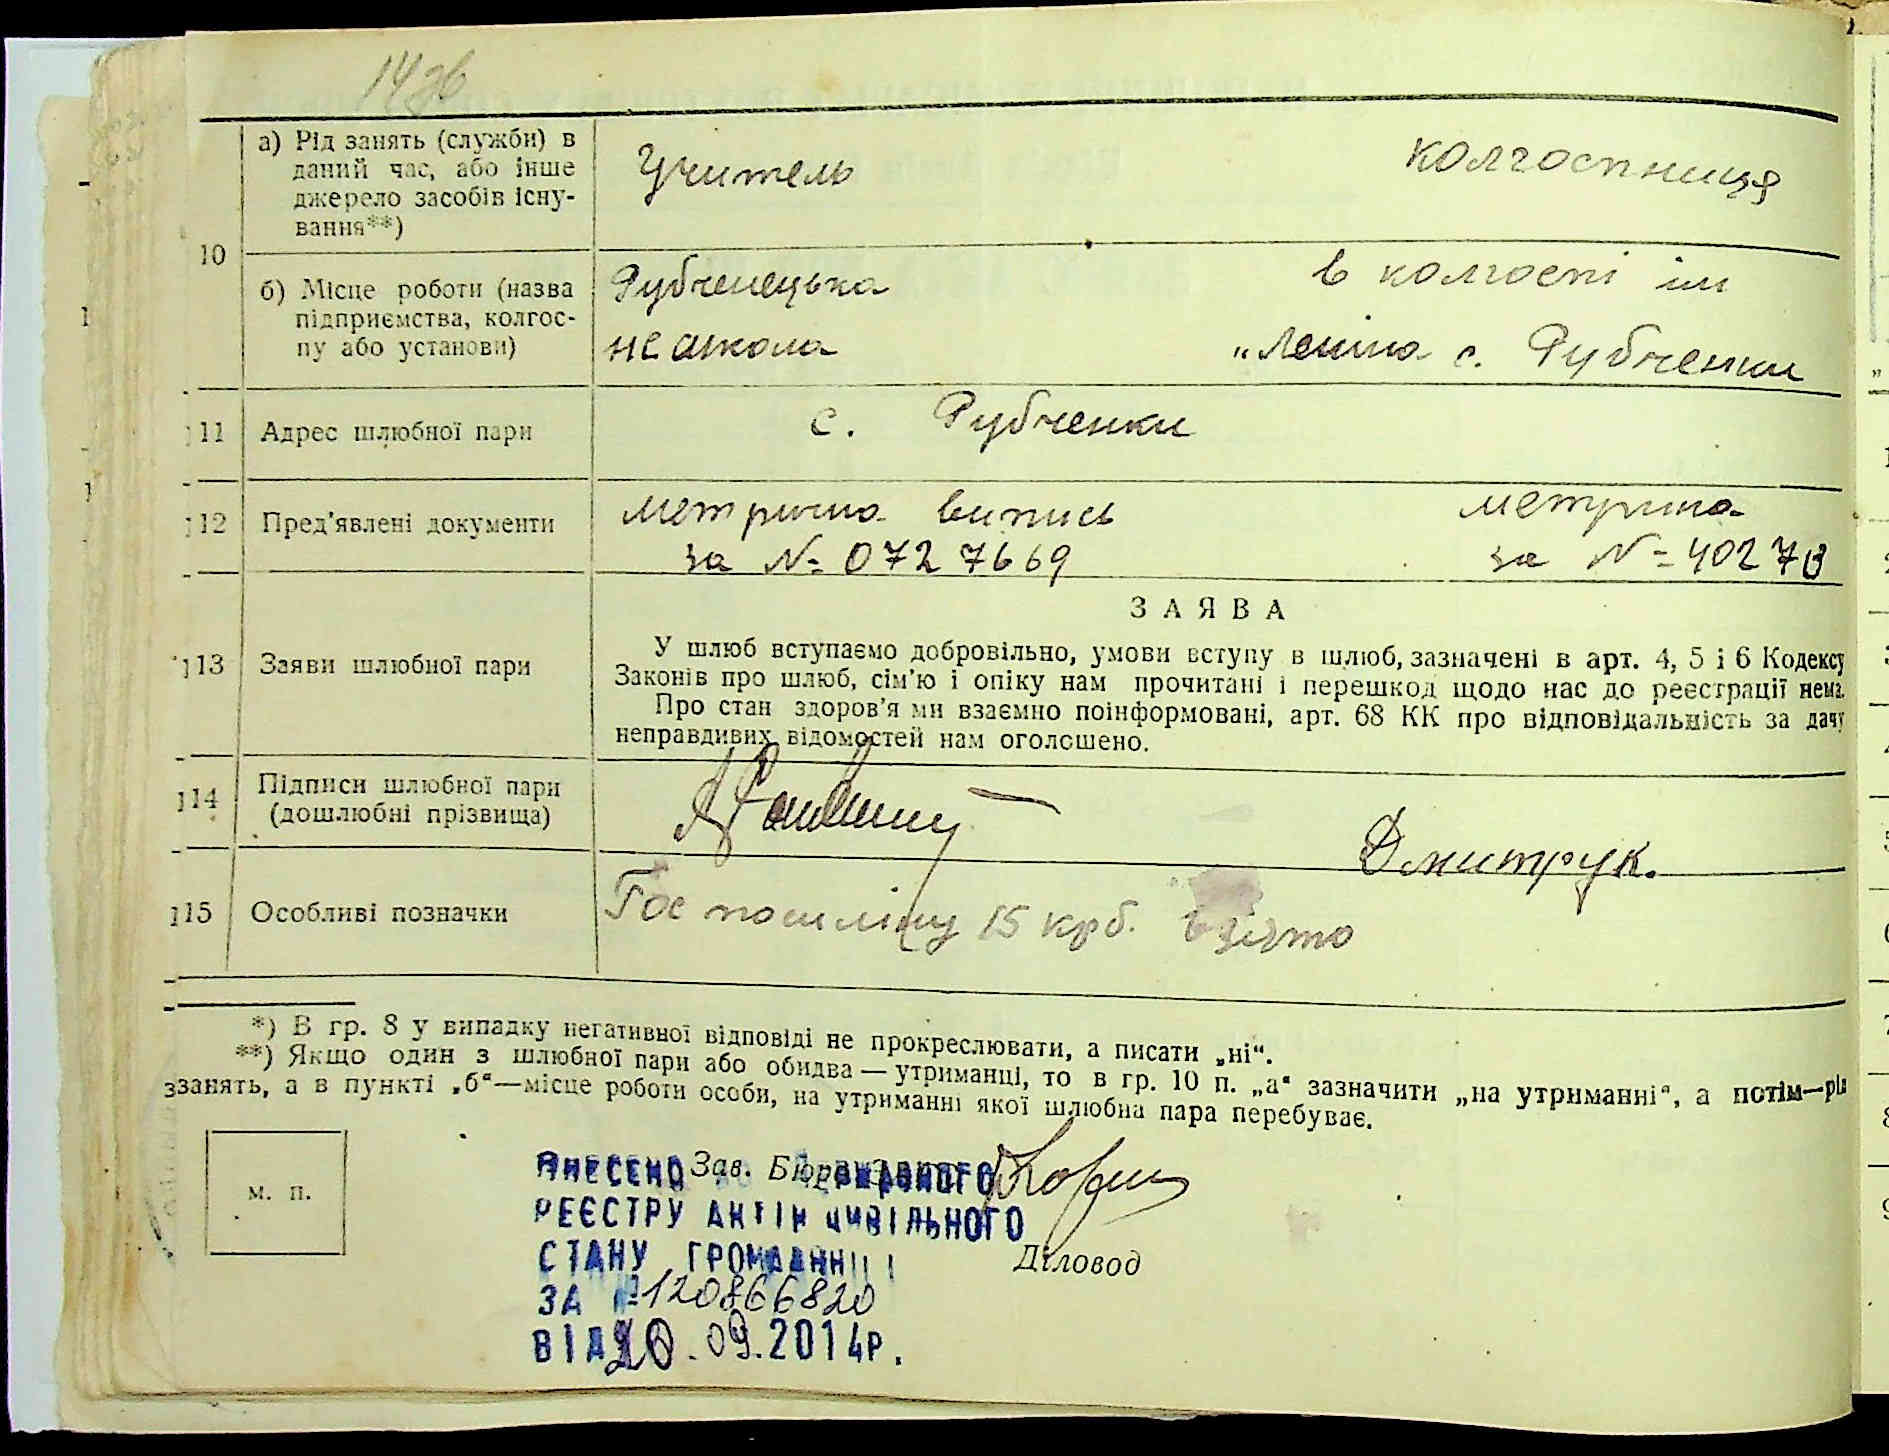 14зв
а) Рід занять (служби) в
даний час, або інше
джерело засобів існу-
вання**)
Учитель
колгоспниця
10
б) Місце роботи (назва
підприємства, колгос-
пу або установи)
Рубченецька
не школа
в колгоспі ім
„Леніна с. Рубченки
11 Адрес шлюбної пари
с. Рубченки
12 Пред'явлені документи
метрична випись
за № 0727669
метрична
за №
13 Заяви шлюбної пари
ЗАЯВА
У шлюб вступаємо добровільно, умови вступу в шлюб, зазначені в арт. 4, 5 і 6 Кодексу
Законів про шлюб, сім'ю і опіку нам прочитані і перешкод щодо нас до реєстрації нема.
Про стан здоров'я ми взаємно поінформовані, арт. 68 КК про відповідальність за дачу
неправдивих відомостей нам оголошено.
14 Підписи шлюбної пари
(дошлюбні прізвища)
Дмитрук.
15 Особливі позначки
Гос пошліну 15 крб. взято
*) В гр. 8 у випадку негативної відповіді не прокреслювати, а писати „ні“.
**) Якщо один з шлюбної пари або обидва — утриманці, то в гр. 10 п. „а“ зазначити „на утриманні“, а потім—рід
занять, а в пункті „б“—місце роботи особи, на утриманні якої шлюбна пара перебуває.
м. п.
Зав. Бюро
Діловод
ВНЕСЕНО ДО ДЕРЖАВНОГО
РЕЄСТРУ АКТІВ ЦИВІЛЬНОГО
СТАНУ ГРОМАДЯН
ЗА № 120866820
ВІД 20.09.2014р.